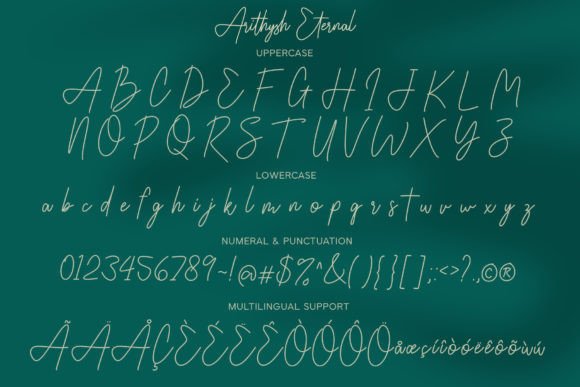 Arithysh Eternal
UPPERCASE
A B C D E F G H I J K L M
N O P Q R S T U V W X Y Z
LOWERCASE
a b c d e f g h i j k l m n o p q r s t u v w x y z
NUMERAL & PUNCTUATION
0123456789~!@#$%^&(){}[];:<>?.,©®
MULTILINGUAL SUPPORT
ÃÄÅÇÈÉËÊÒÓÔÖåæçíîòóëêôõùú